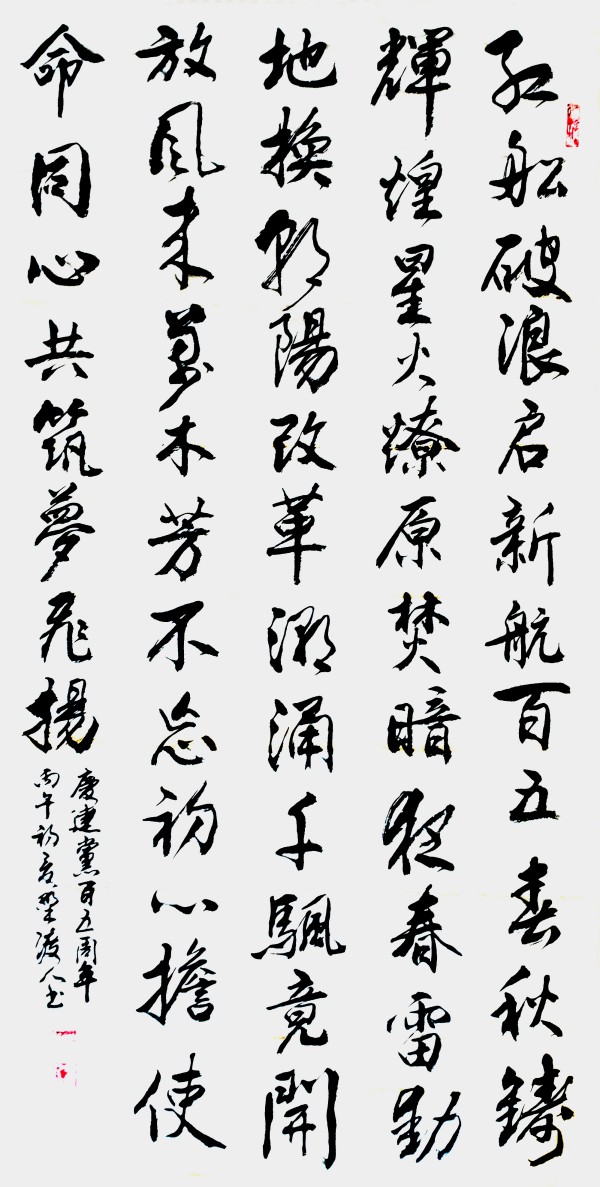 红船破浪启新航百五春秋鑄
輝煌星火燎原焚暗夜春雷動
地換朝陽改革潮涌千颿竟開
放風来萬木芳不忘初心擔使
命同心共筑夢飛揚
慶建黨百五周年
丙午初夏凌人书